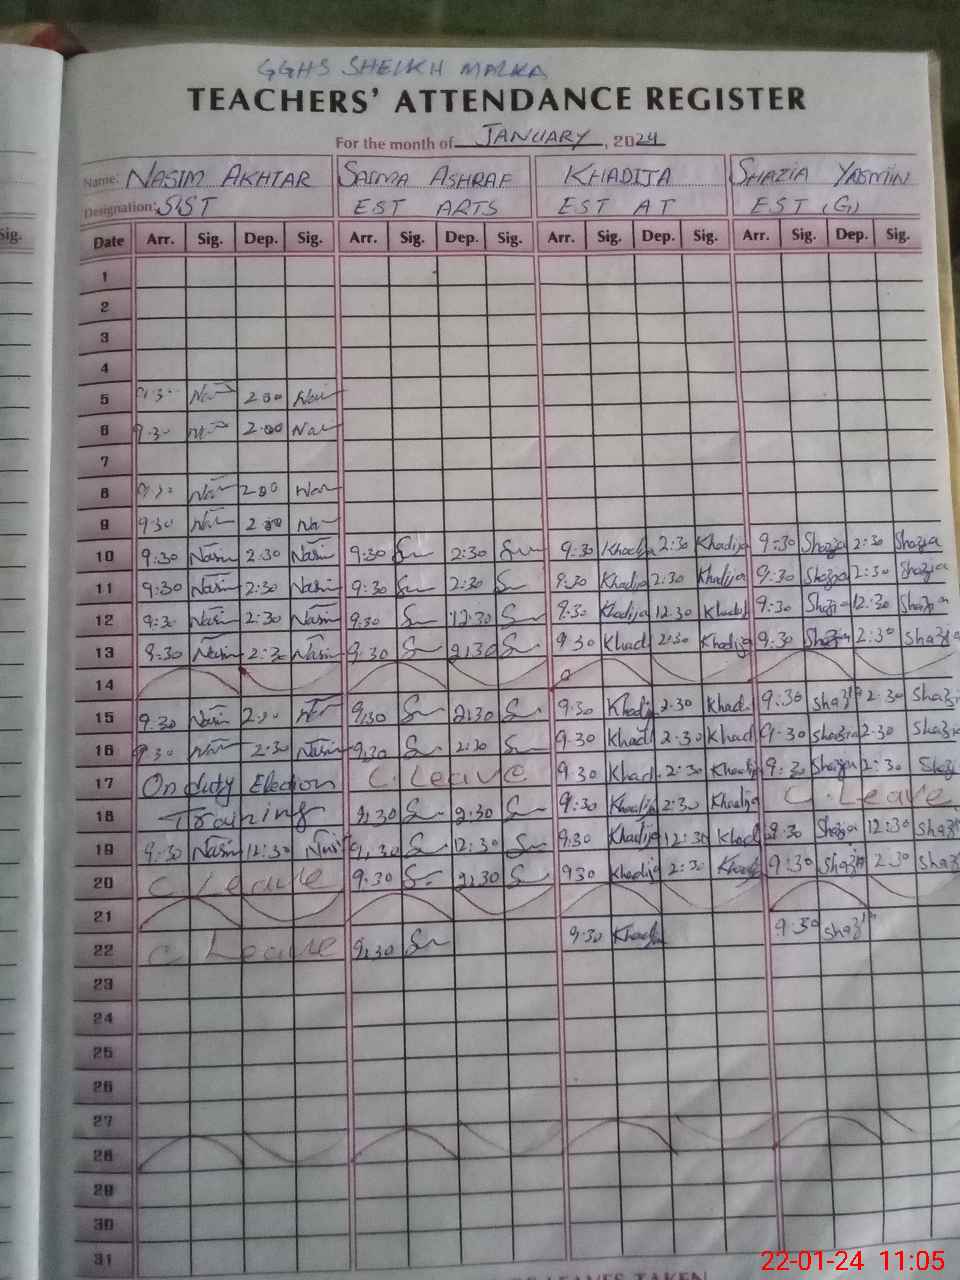 GGHS SHEIKH MALKA
TEACHERS' ATTENDANCE REGISTER
For the month of JANUARY, 2024
Name: NASIM AKHTAR SAIMA ASHRAF KHADIJA SHAZIA YASMIN
Designation: SST EST ARTS EST AT EST (G)
Sig.
Date Arr. Sig. Dep. Sig. Arr. Sig. Dep. Sig. Arr. Sig. Dep. Sig. Arr. Sig. Dep. Sig.
1
2
3
4
5 9:30 2:00
6 9:30 2:00
7
8 2:00
9 9:30 2:00
10 9:30 Nasim 2:30 Nasim 9:30 2:30 9:30 Khadija 2:30 Khadija 9:30 Shazia 2:30 Shazia
11 9:30 Nasim 2:30 Nasim 9:30 2:30 9:30 Khadija 2:30 Khadija 9:30 Shazia 2:30 Shazia
12 9:30 Nasim 2:30 Nasim 9:30 12:30 9:30 Khadija 12:30 Khadi 9:30 Shazia 12:30 Shazia
13 9:30 Nasim 2:30 Nasim 9:30 2:30 9:30 Khadi 2:30 Khadija 9:30 Shazia 2:30 Shazia
14
15 9:30 Nasim 2:30 9:30 2:30 9:30 Khadij 2:30 Khad 9:30 Shazi 2:30 Shazi
16 9:30 2:30 Nasim 9:30 2:30 9:30 Khad 2:30 Khad 9:30 Shazia 2:30 Shazia
17 On duty Election C. Leave 9:30 Khad 2:30 Khadija 9:30 Shazia 2:30 Shazi
18 Training 9:30 2:30 9:30 Khadija 2:30 Khadija C. Leave
19 9:30 Nasim 12:30 Nasi 9:30 12:30 9:30 Khadija 12:30 Khad 9:30 Shazia 12:30 Shazi
20 C Leave 9:30 2:30 930 Khadija 2:30 Khadi 9:30 Shazia 2:30 Shazi
21
22 C Leave 9:30 9:30 Khadij 9:30 Shazi
23
24
25
26
27
28
29
30
31
22-01-24 11:05